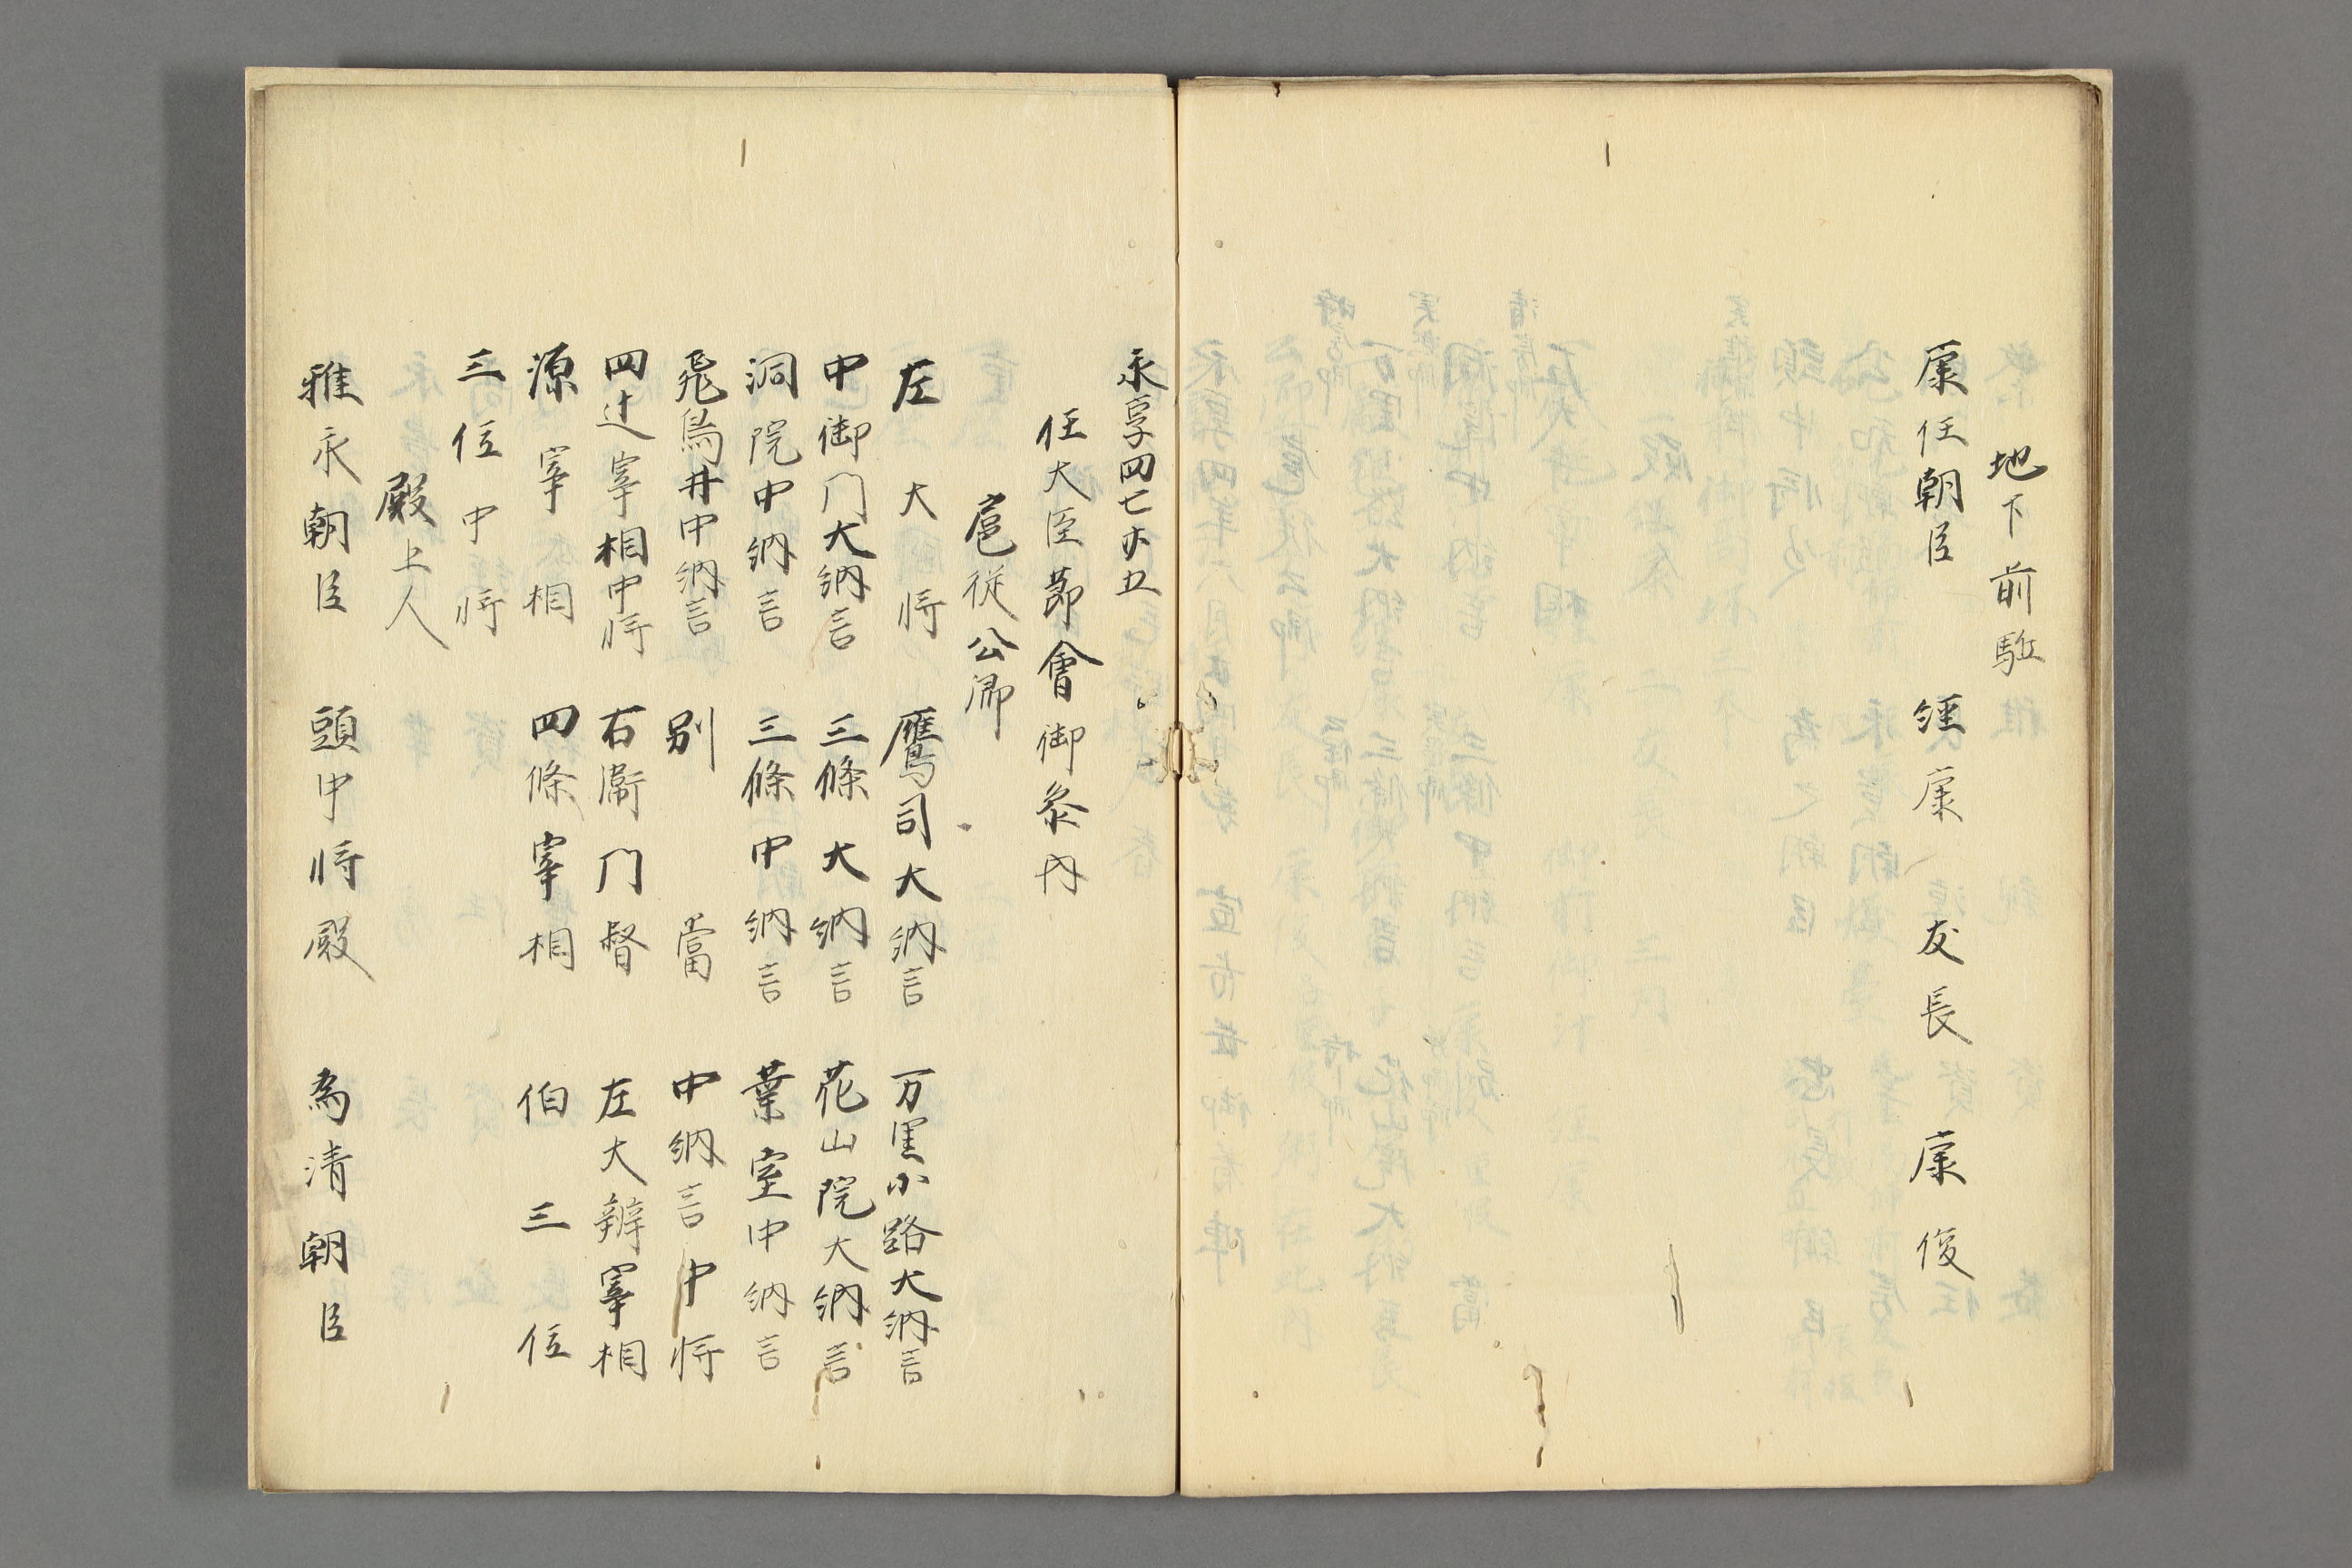 地下前駈
康任朝臣　経康　友長　康俊
永享四七廿五
任大臣節會御参内
扈従公卿
左大将　鷹司大納言　万里小路大納言
中御门大納言　三條大納言　花山院大納言
洞院中納言　三條中納言　葉室中納言
飛鳥井中納言　別當　中納言中将
四辻宰相中将　右衛门督　左大辨宰相
源宰相　四條宰相　伯三位
三位中将
殿上人
雅永朝臣　頭中将殿　為清朝臣